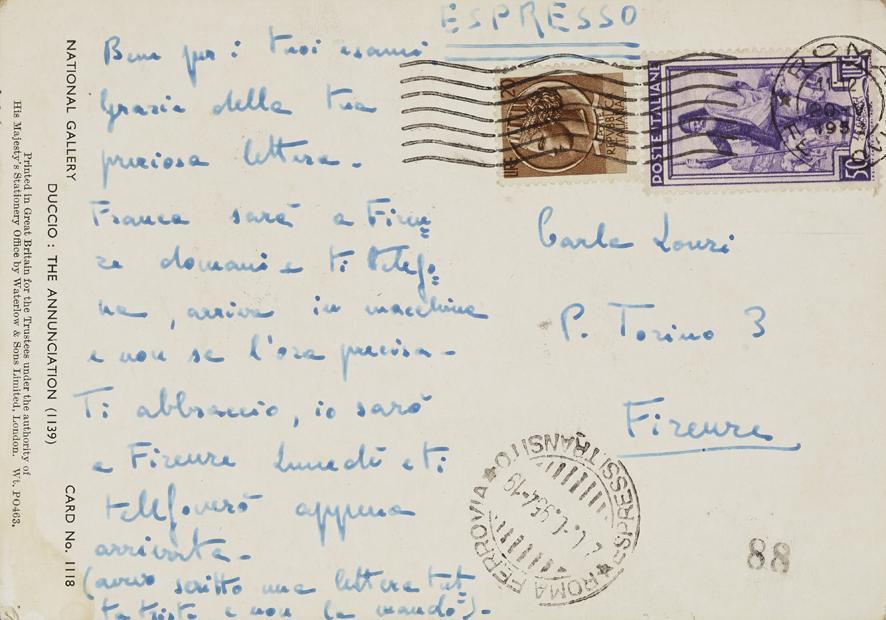 ESPRESSO
Bene per i tuoi esami
Grazie della tua
preziosa lettera -
Franca sarà a Firen=
ze domani e ti telefo=
na, arriva in macchina
e non so l'ora precisa -
Ti abbraccio, io sarò
a Firenze lunedì e ti
telefonerò appena
arrivata -
(avevo scritto una lettera tut=
ta triste e non la mando) -
Carla
P. Torino 3
Firenze
POSTE ITALIANE
LIRE
50
LIRE
20
REPVBBLICA
ITALIANA
ROMA
ROMA FERROVIA
ESPRESSI TRANSITO
88
NATIONAL GALLERY
DUCCIO : THE ANNUNCIATION (1139)
CARD No. 1118
Printed in Great Britain for the Trustees under the authority of
His Majesty's Stationery Office by Waterlow & Sons Limited, London. Wt. PO463.